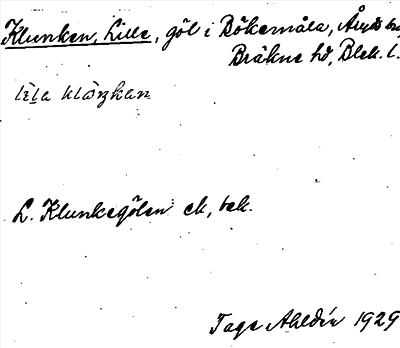 Klunken, Lille, göl i Bökemåla, Åryds
Bräkne hd, Blek. l.
L. Klunkegölen ek, bek.
Tage Ahldén 1929